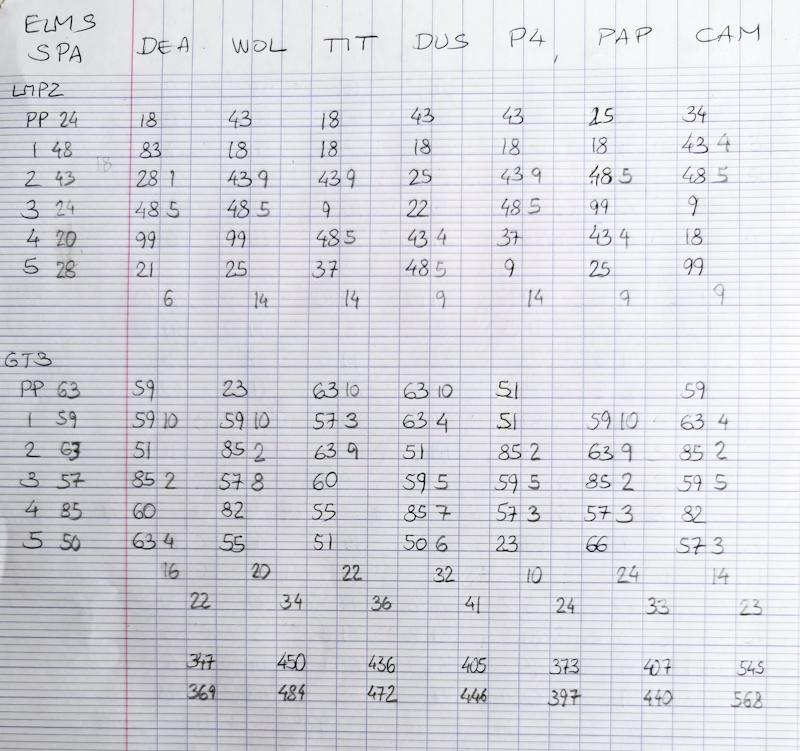 ELMS
SPA DEA WOL TIT DUS P4, PAP CAM
LMP2
PP 24 18 43 18 43 43 25 34
1 48 83 18 18 18 18 18 43 4
18
2 43 28 1 43 9 43 9 25 43 9 48 5 48 5
3 24 48 5 48 5 9 22 48 5 99 9
4 20 99 99 48 5 43 4 37 43 4 18
5 28 21 25 37 48 5 9 25 99
6 14 14 9 14 9 9
GT3
PP 63 59 23 63 10 63 10 51 59
1 59 59 10 59 10 57 3 63 4 51 59 10 63 4
2 63 51 85 2 63 9 51 85 2 63 9 85 2
3 57 85 2 57 8 60 59 5 59 5 85 2 59 5
4 85 60 82 55 85 7 57 3 57 3 82
5 50 63 4 55 51 50 6 23 66 57 3
16 20 22 32 10 24 14
22 34 36 41 24 33 23
347 450 436 405 373 407 545
369 484 472 446 397 440 568